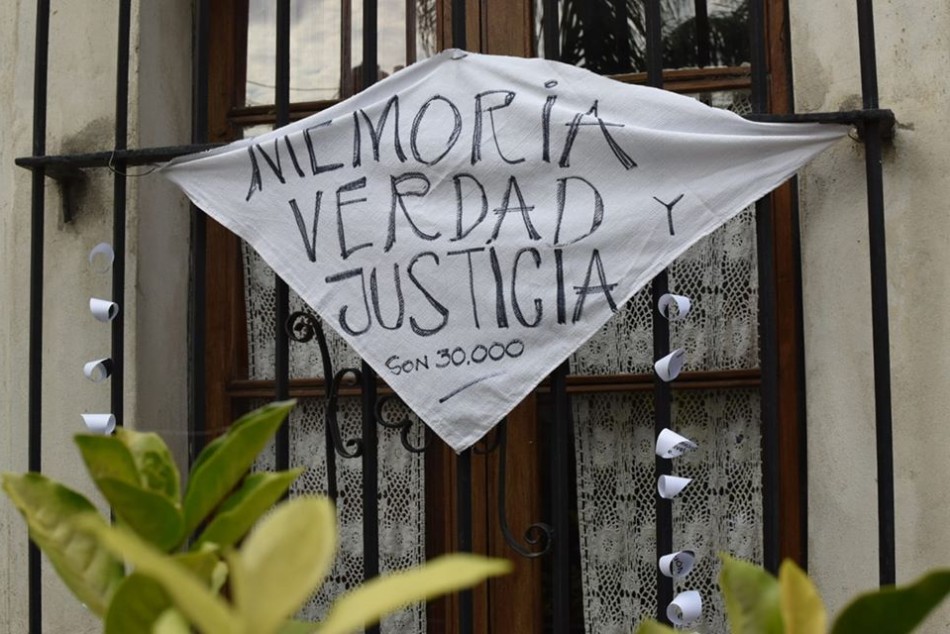 MEMORIA
VERDAD Y
JUSTICIA
SON 30.000